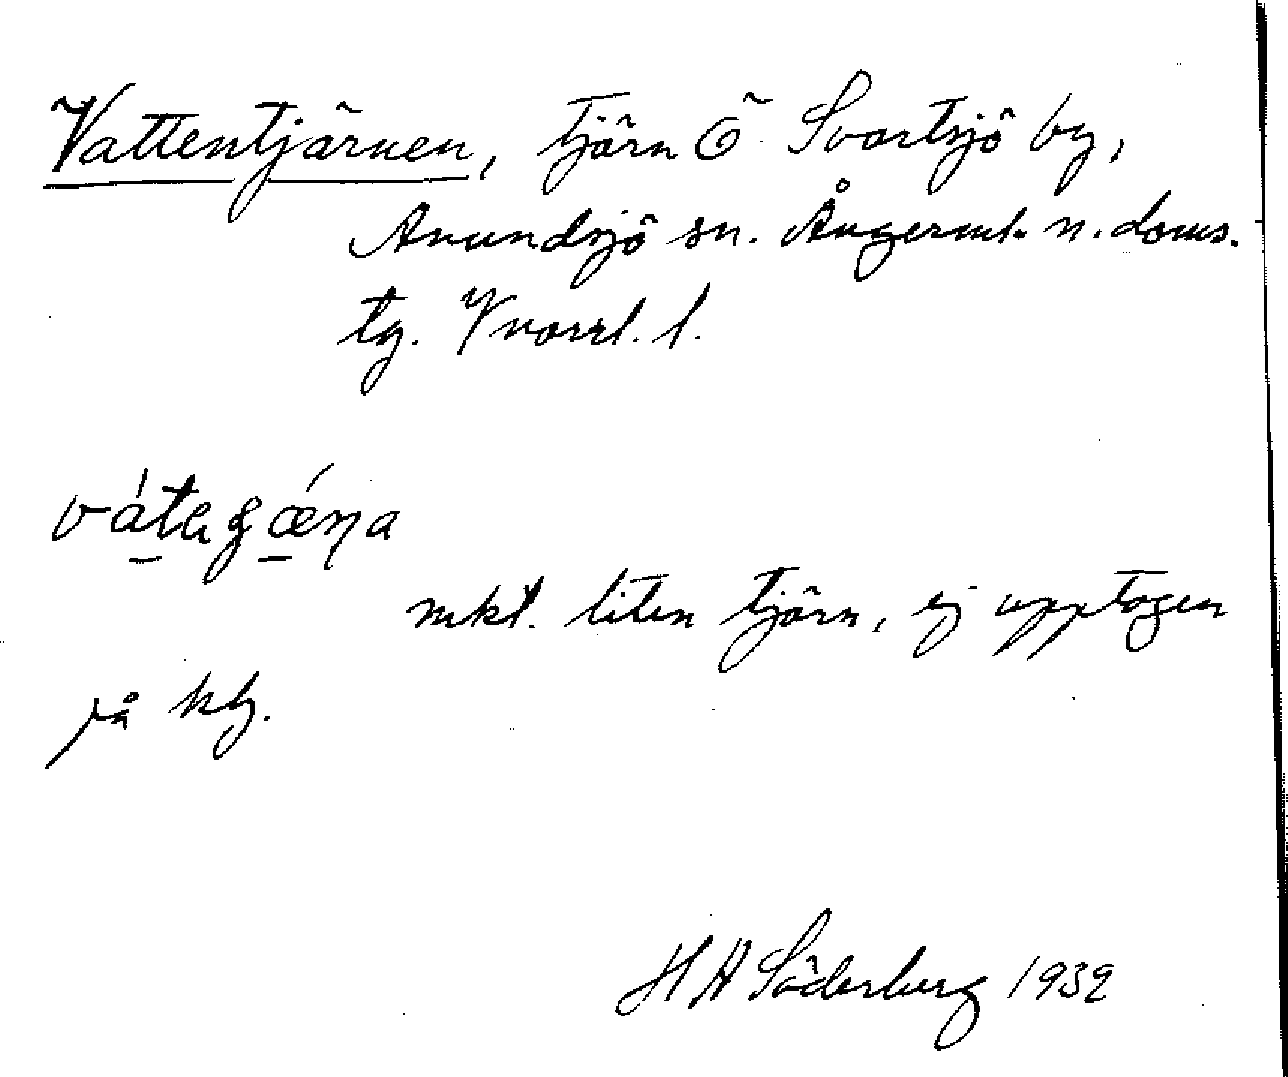 Vattentjärnen, tjärn Ö Svartsjö by,
Anundsjö sn. Ångerml. n. doms.
tg. Vnorrl. l.
mkt. liten tjärn, ej upptagen
på kb.
H A Söderberg 1932